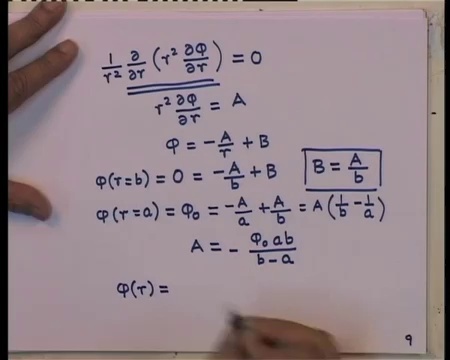 1/r² ∂/∂r (r² ∂φ/∂r) = 0
r² ∂φ/∂r = A
φ = -A/r + B
φ(r=b) = 0 = -A/b + B   B = A/b
φ(r=a) = φ₀ = -A/a + A/b = A(1/b - 1/a)
A = - φ₀ab/(b-a)
φ(r) =
9